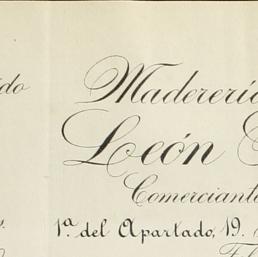 Maderería
León
Comerciante
1ª del Apartado, 19.